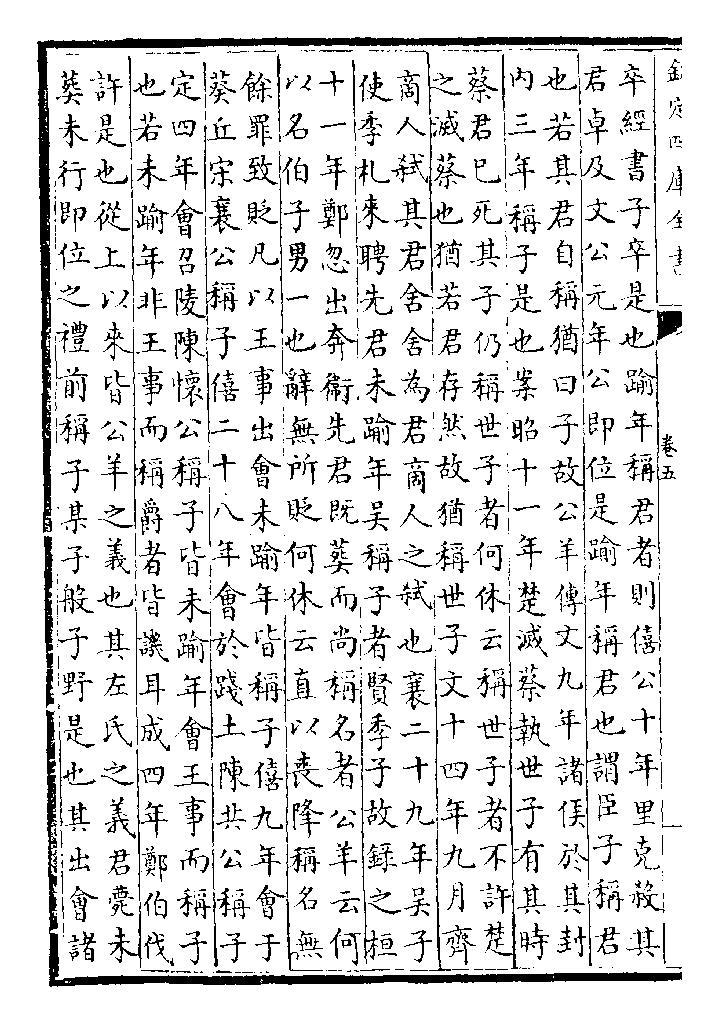 欽定四庫全書
卷五
卒經書子卒是也踰年稱君者則僖公十年里克殺其
君卓及文公元年公即位是踰年稱君也謂臣子稱君
也若其君自稱猶曰子故公羊傳文九年諸侯於其封
內三年稱子是也案昭十一年楚滅蔡執世子有其時
蔡君已死其子仍稱世子者何休云稱世子者不許楚
之滅蔡也猶若君存然故猶稱世子文十四年九月齊
商人弑其君舍舍為君商人之弑也襄二十九年吳子
使季札來聘先君未踰年吳稱子者賢季子故錄之桓
十一年鄭忽出奔衛先君既葬而尚稱名者公羊云何
以名伯子男一也辭無所貶何休云直以喪降稱名無
餘罪致貶凡以王事出會未踰年皆稱子僖九年會于
葵丘宋襄公稱子僖二十八年會於踐土陳共公稱子
定四年會召陵陳懷公稱子皆未踰年會王事而稱子
也若未踰年非王事而稱爵者皆譏耳成四年鄭伯伐
許是也從上以來皆公羊之義也其左氏之義君薨未
葬未行即位之禮前稱子某子般子野是也其出會諸